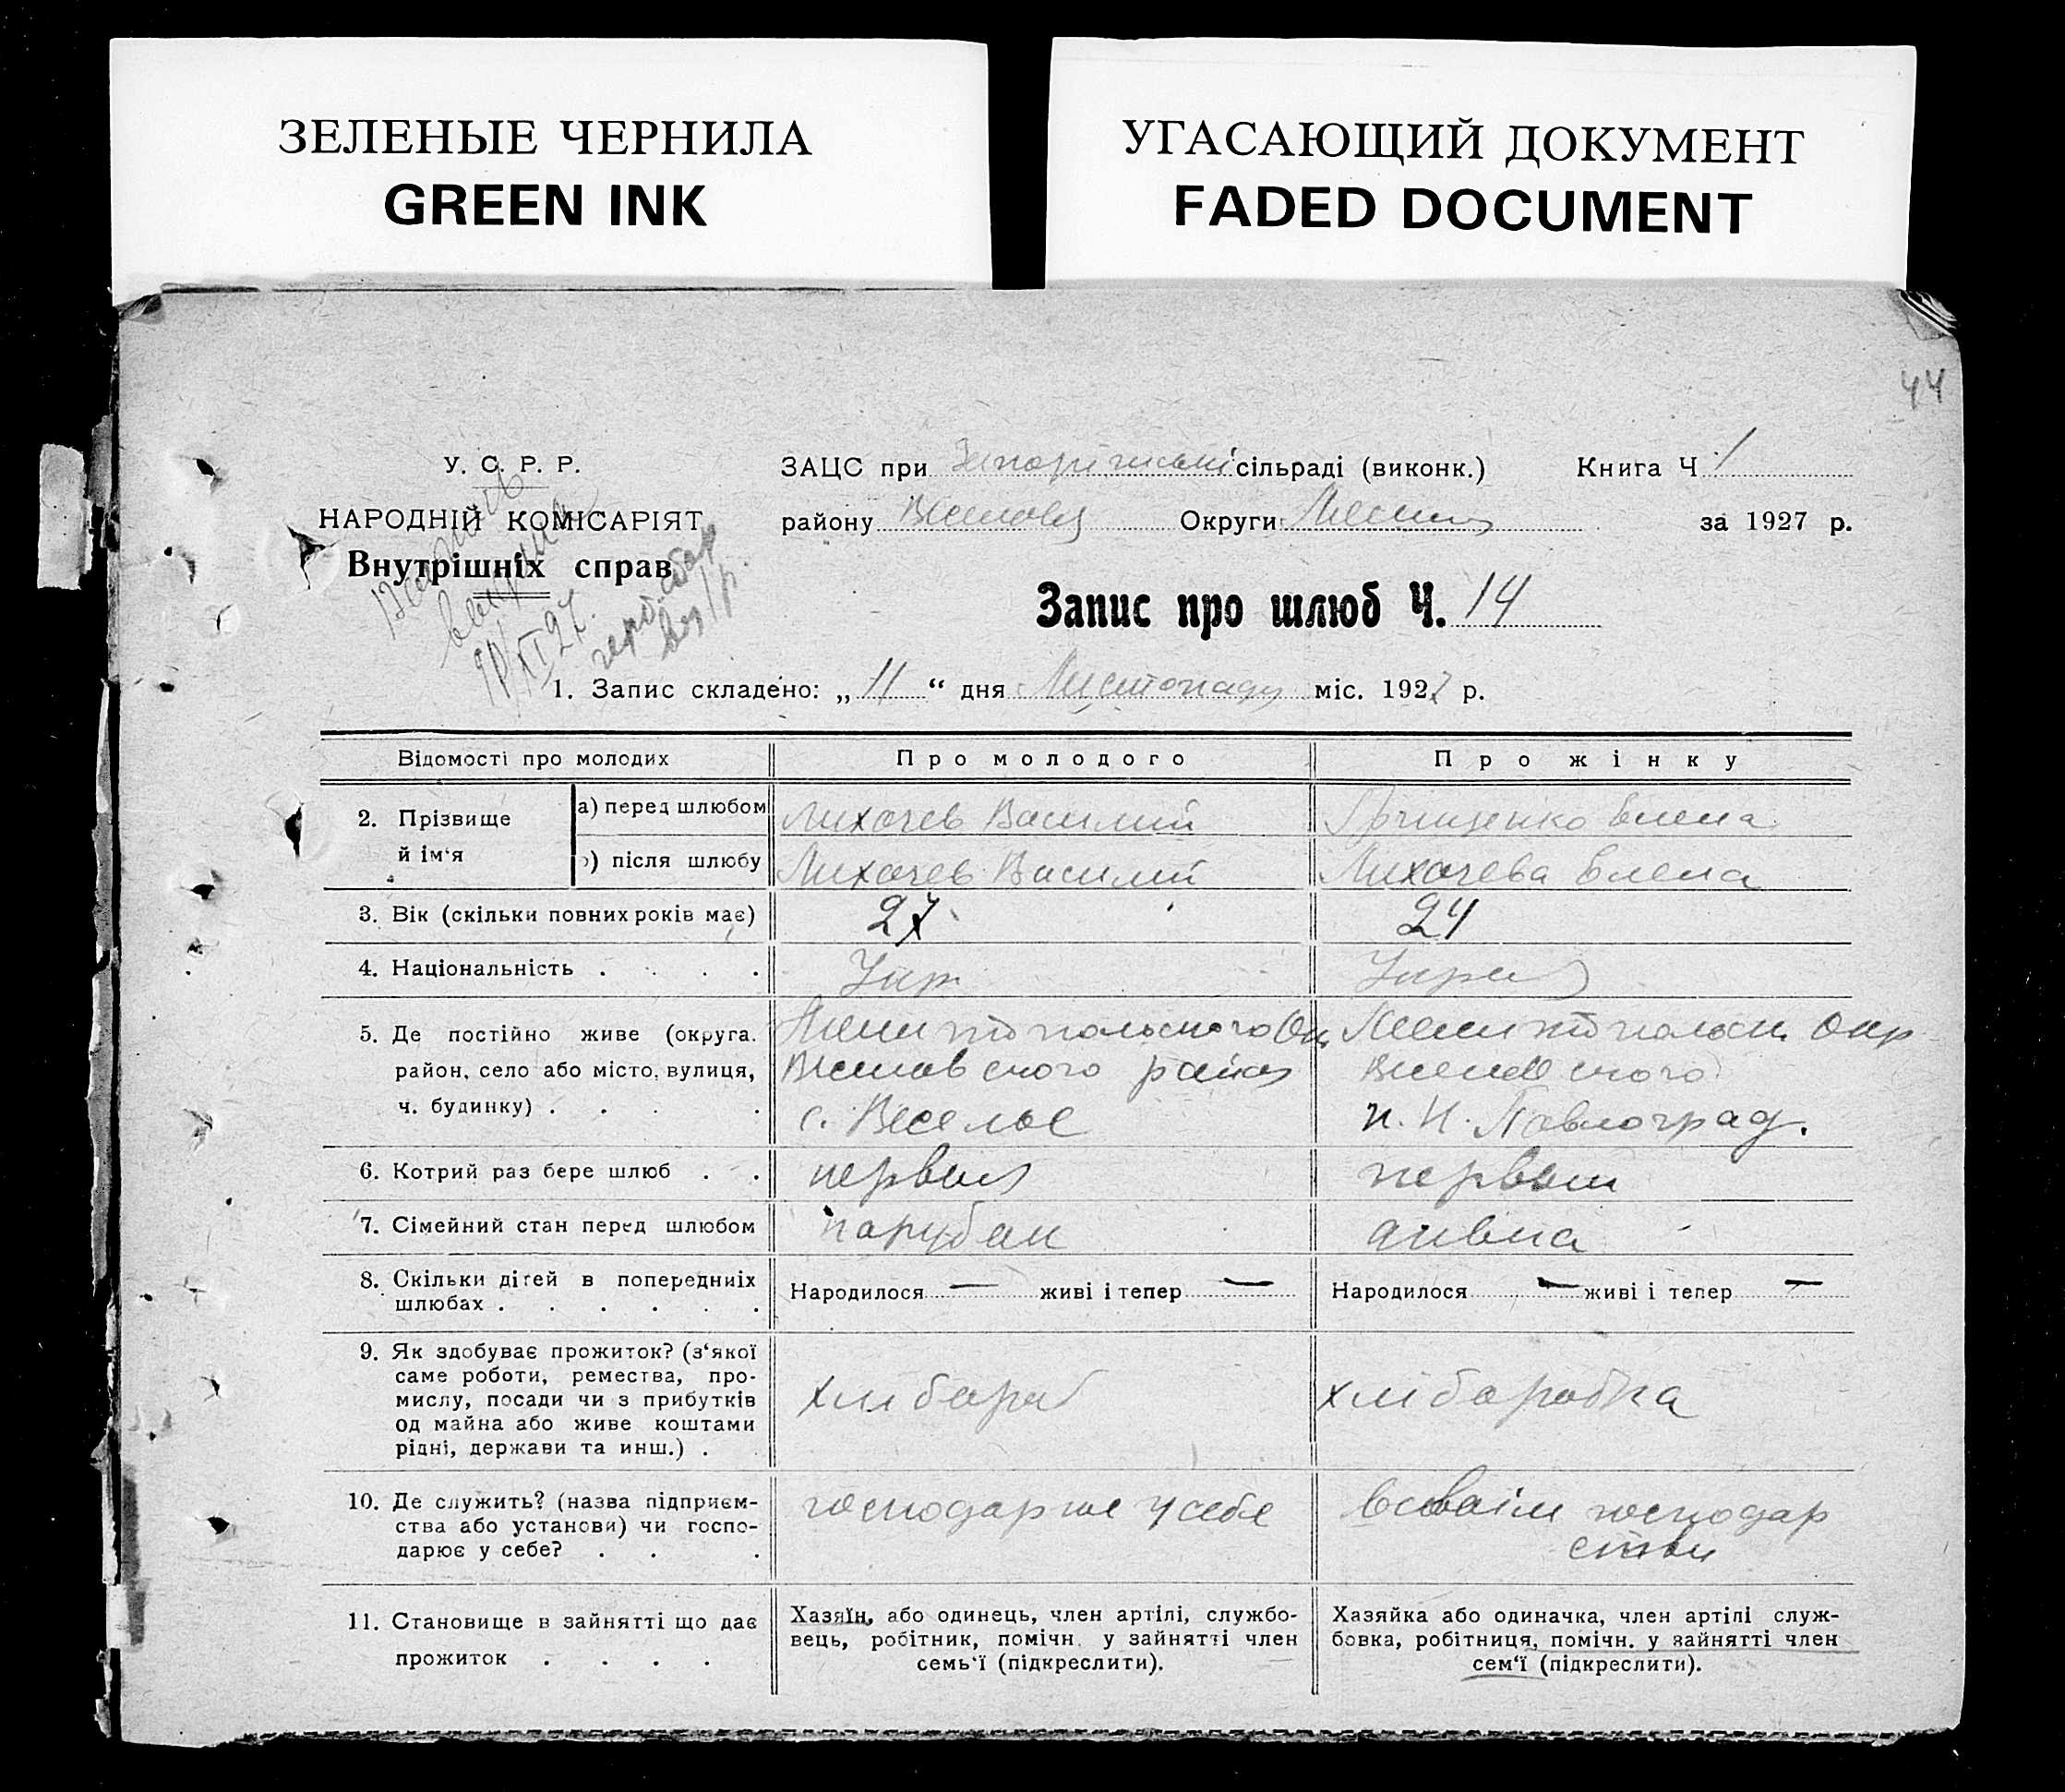 ЗЕЛЕНЫЕ ЧЕРНИЛА
GREEN INK
УГАСАЮЩИЙ ДОКУМЕНТ
FADED DOCUMENT
44
У. С. Р. Р.
НАРОДНІЙ КОМІСАРІЯТ
Внутрішніх справ
ЗАЦС при сільраді (виконк.) Книга Ч 1
району Округи за 1927 р.
Запис про шлюб Ч. 14
1. Запис складено: „ 11 “ дня Листопада міс. 1927 р.
Відомості про молодих Про молодого Про жінку
2. Прізвище й ім‘я
а) перед шлюбом Лихачев Василий Елена
б) після шлюбу Лихачев Василий Лихачева Елена
3. Вік (скільки повних років має) 27 24
4. Національність . . . . Укр
5. Де постійно живе (округа. район, село або місто, вулиця, ч. будинку) . . . .
Мелитопольского Ок
Веселовского району
с. Веселое
Мелитопольск Окр
Веселовского
п. Н. Павлоград.
6. Котрий раз бере шлюб . . первый первый
7. Сімейний стан перед шлюбом парубок дивка
8. Скільки дітей в попередніх шлюбах . . . . . . Народилося — живі і тепер — Народилося — живі і тепер —
9. Як здобуває прожиток? (з‘якої саме роботи, ремества, промислу, посади чи з прибутків од майна або живе коштами рідні, держави та инш.) . хлібороб хліборобка
10. Де служить? (назва підприємства або установи) чи господарює у себе? . . . господарює у себе в своїм господарстви
11. Становище в зайнятті що дає прожиток . . . .
Хазяїн, або одинець, член артілі, службовець, робітник, помічн. у зайнятті член семь‘ї (підкреслити).
Хазяйка або одиначка, член артілі службовка, робітниця, помічн. у зайнятті член сем‘ї (підкреслити).